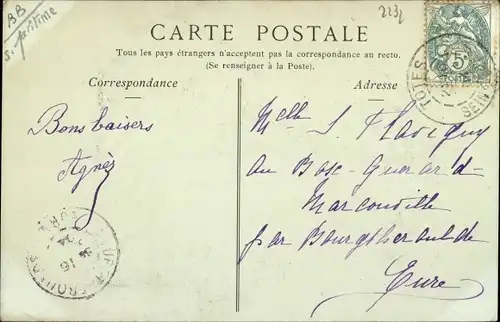 BB
S. Maritime
2232
CARTE POSTALE
Tous les pays étrangers n'acceptent pas la correspondance au recto.
(Se renseigner à la Poste).
Correspondance
Adresse
5
TOTES
SEINE
Bons baisers
Agnès
Melle S. Flavigny
au Bosc-Guerard-
Marcouville
par Bourgtheroulde
Eure
16
04
EURE